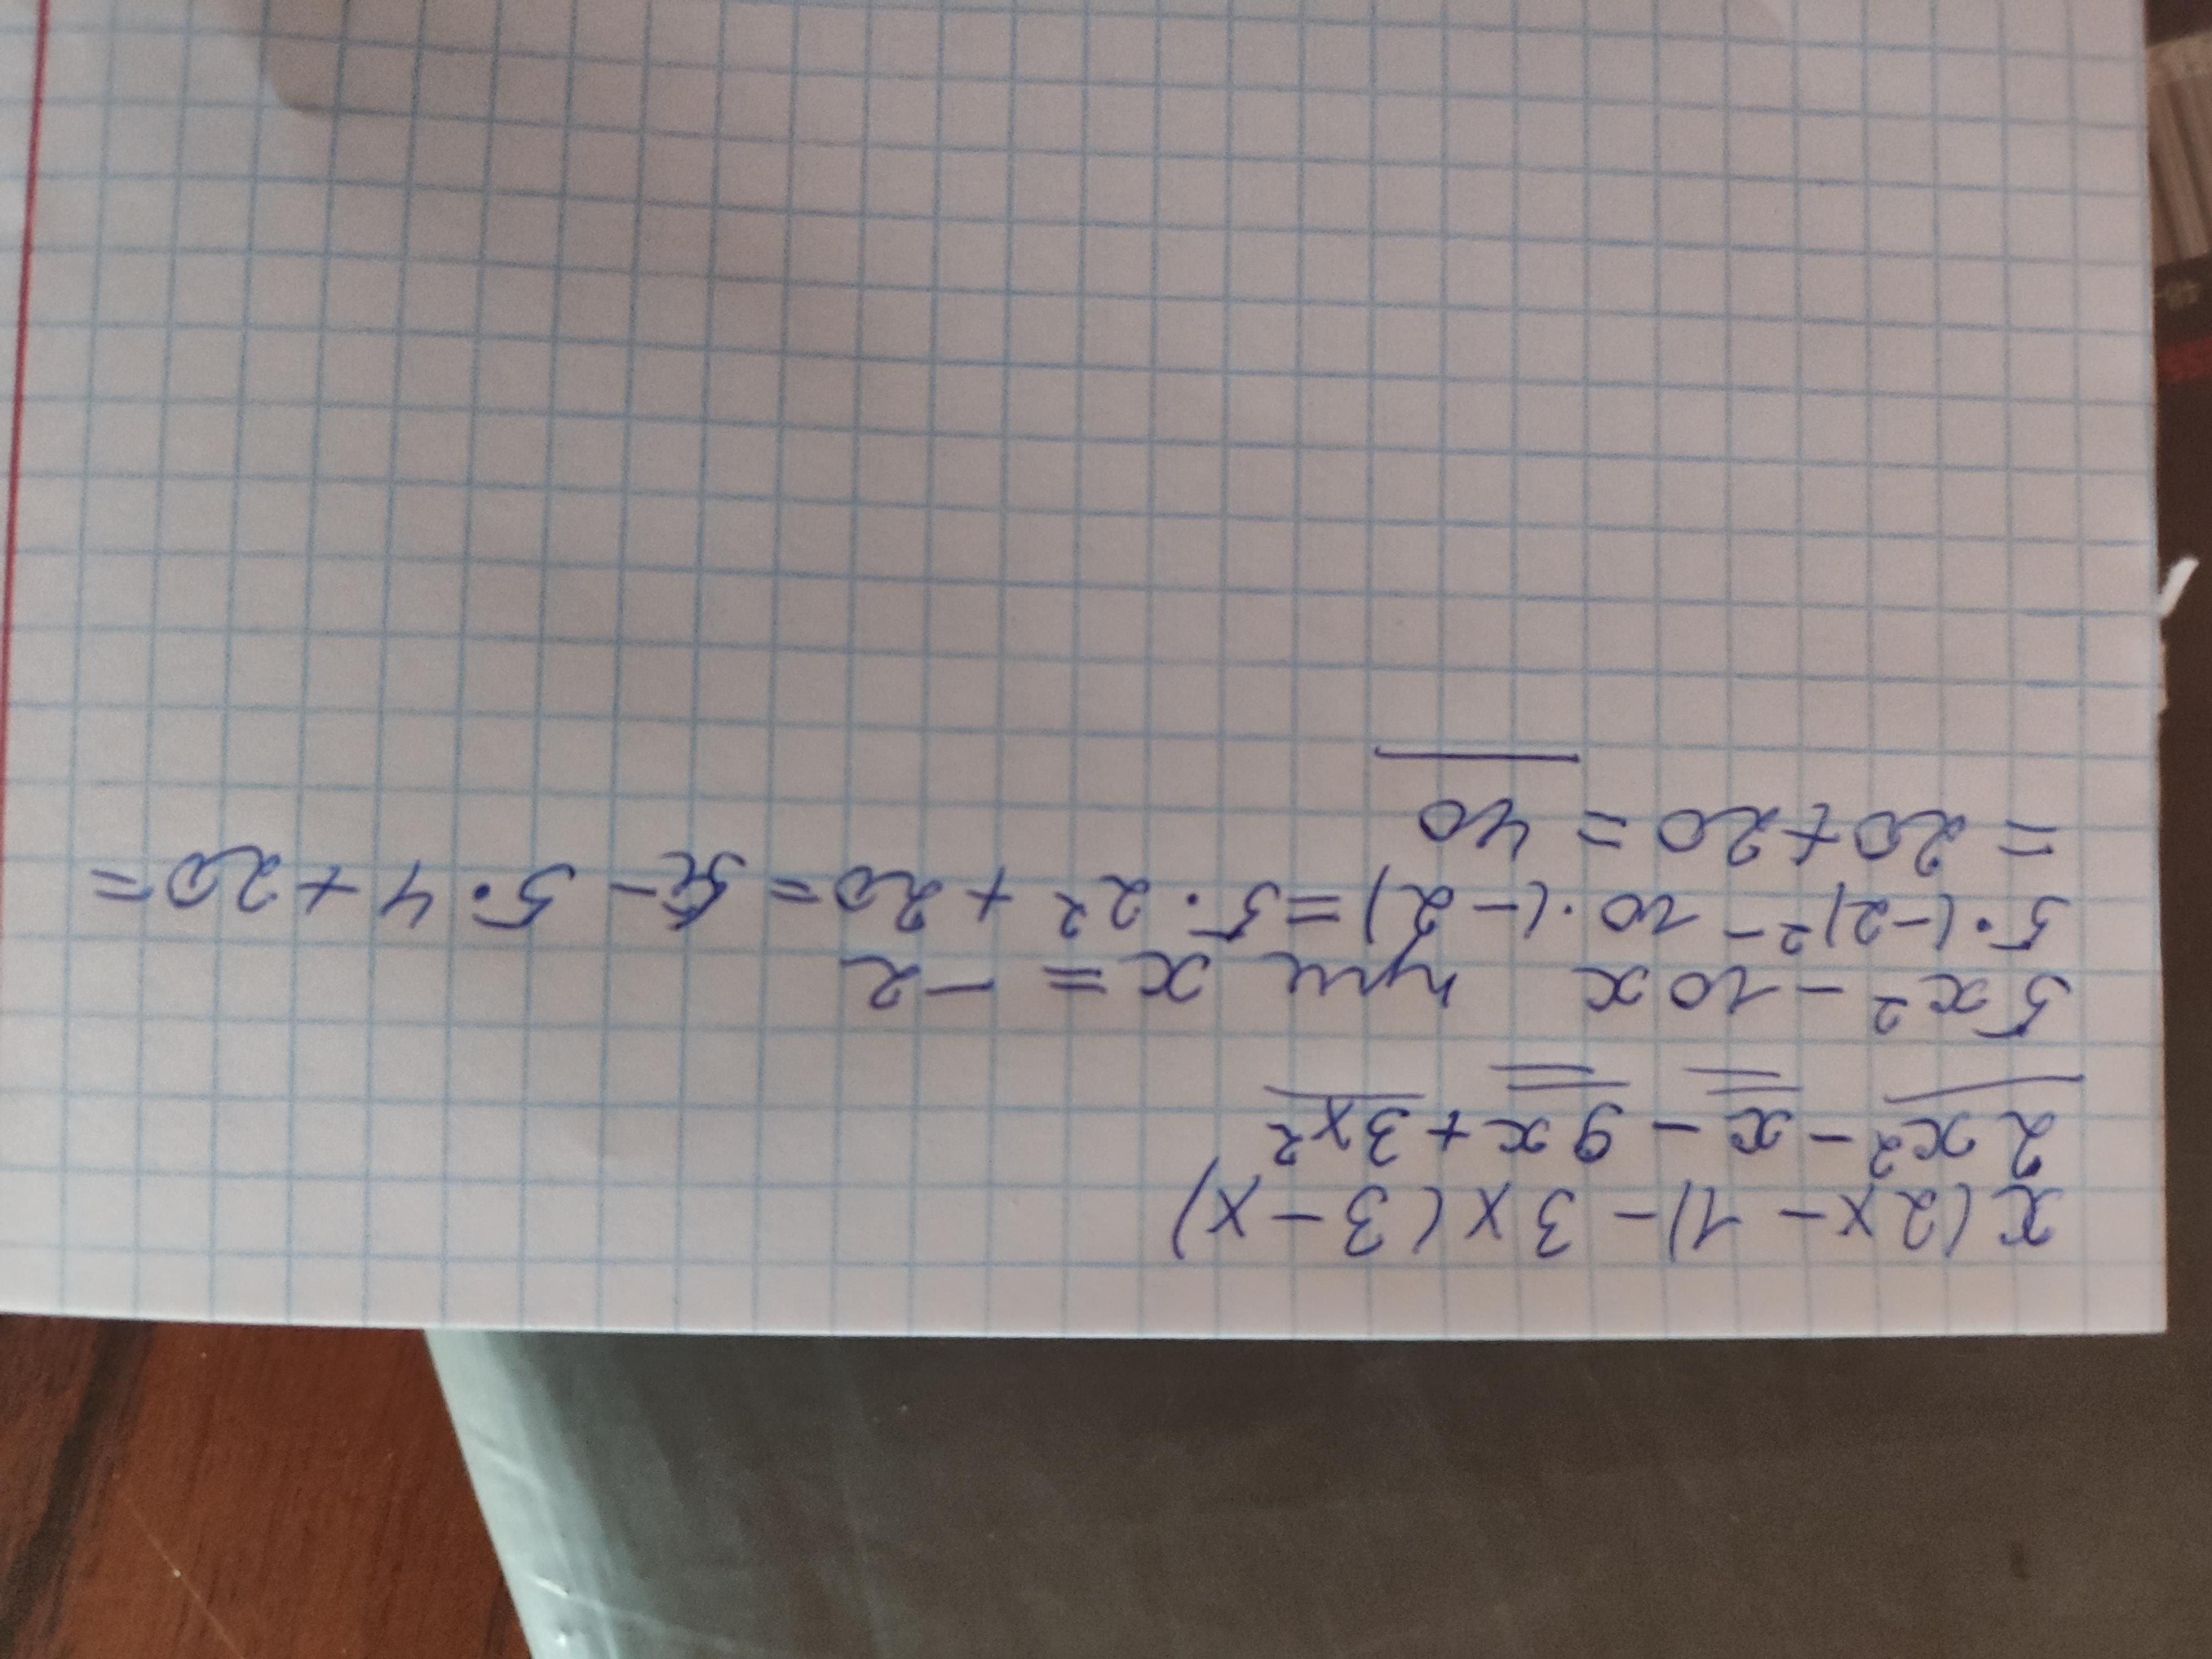 x(2x-1)-3x(3-x)
2x²-x-9x+3x²
5x²-10x при x=-2
5·(-2)²-10·(-2)=5·2²+20= - 5·4+20=
=20+20=40